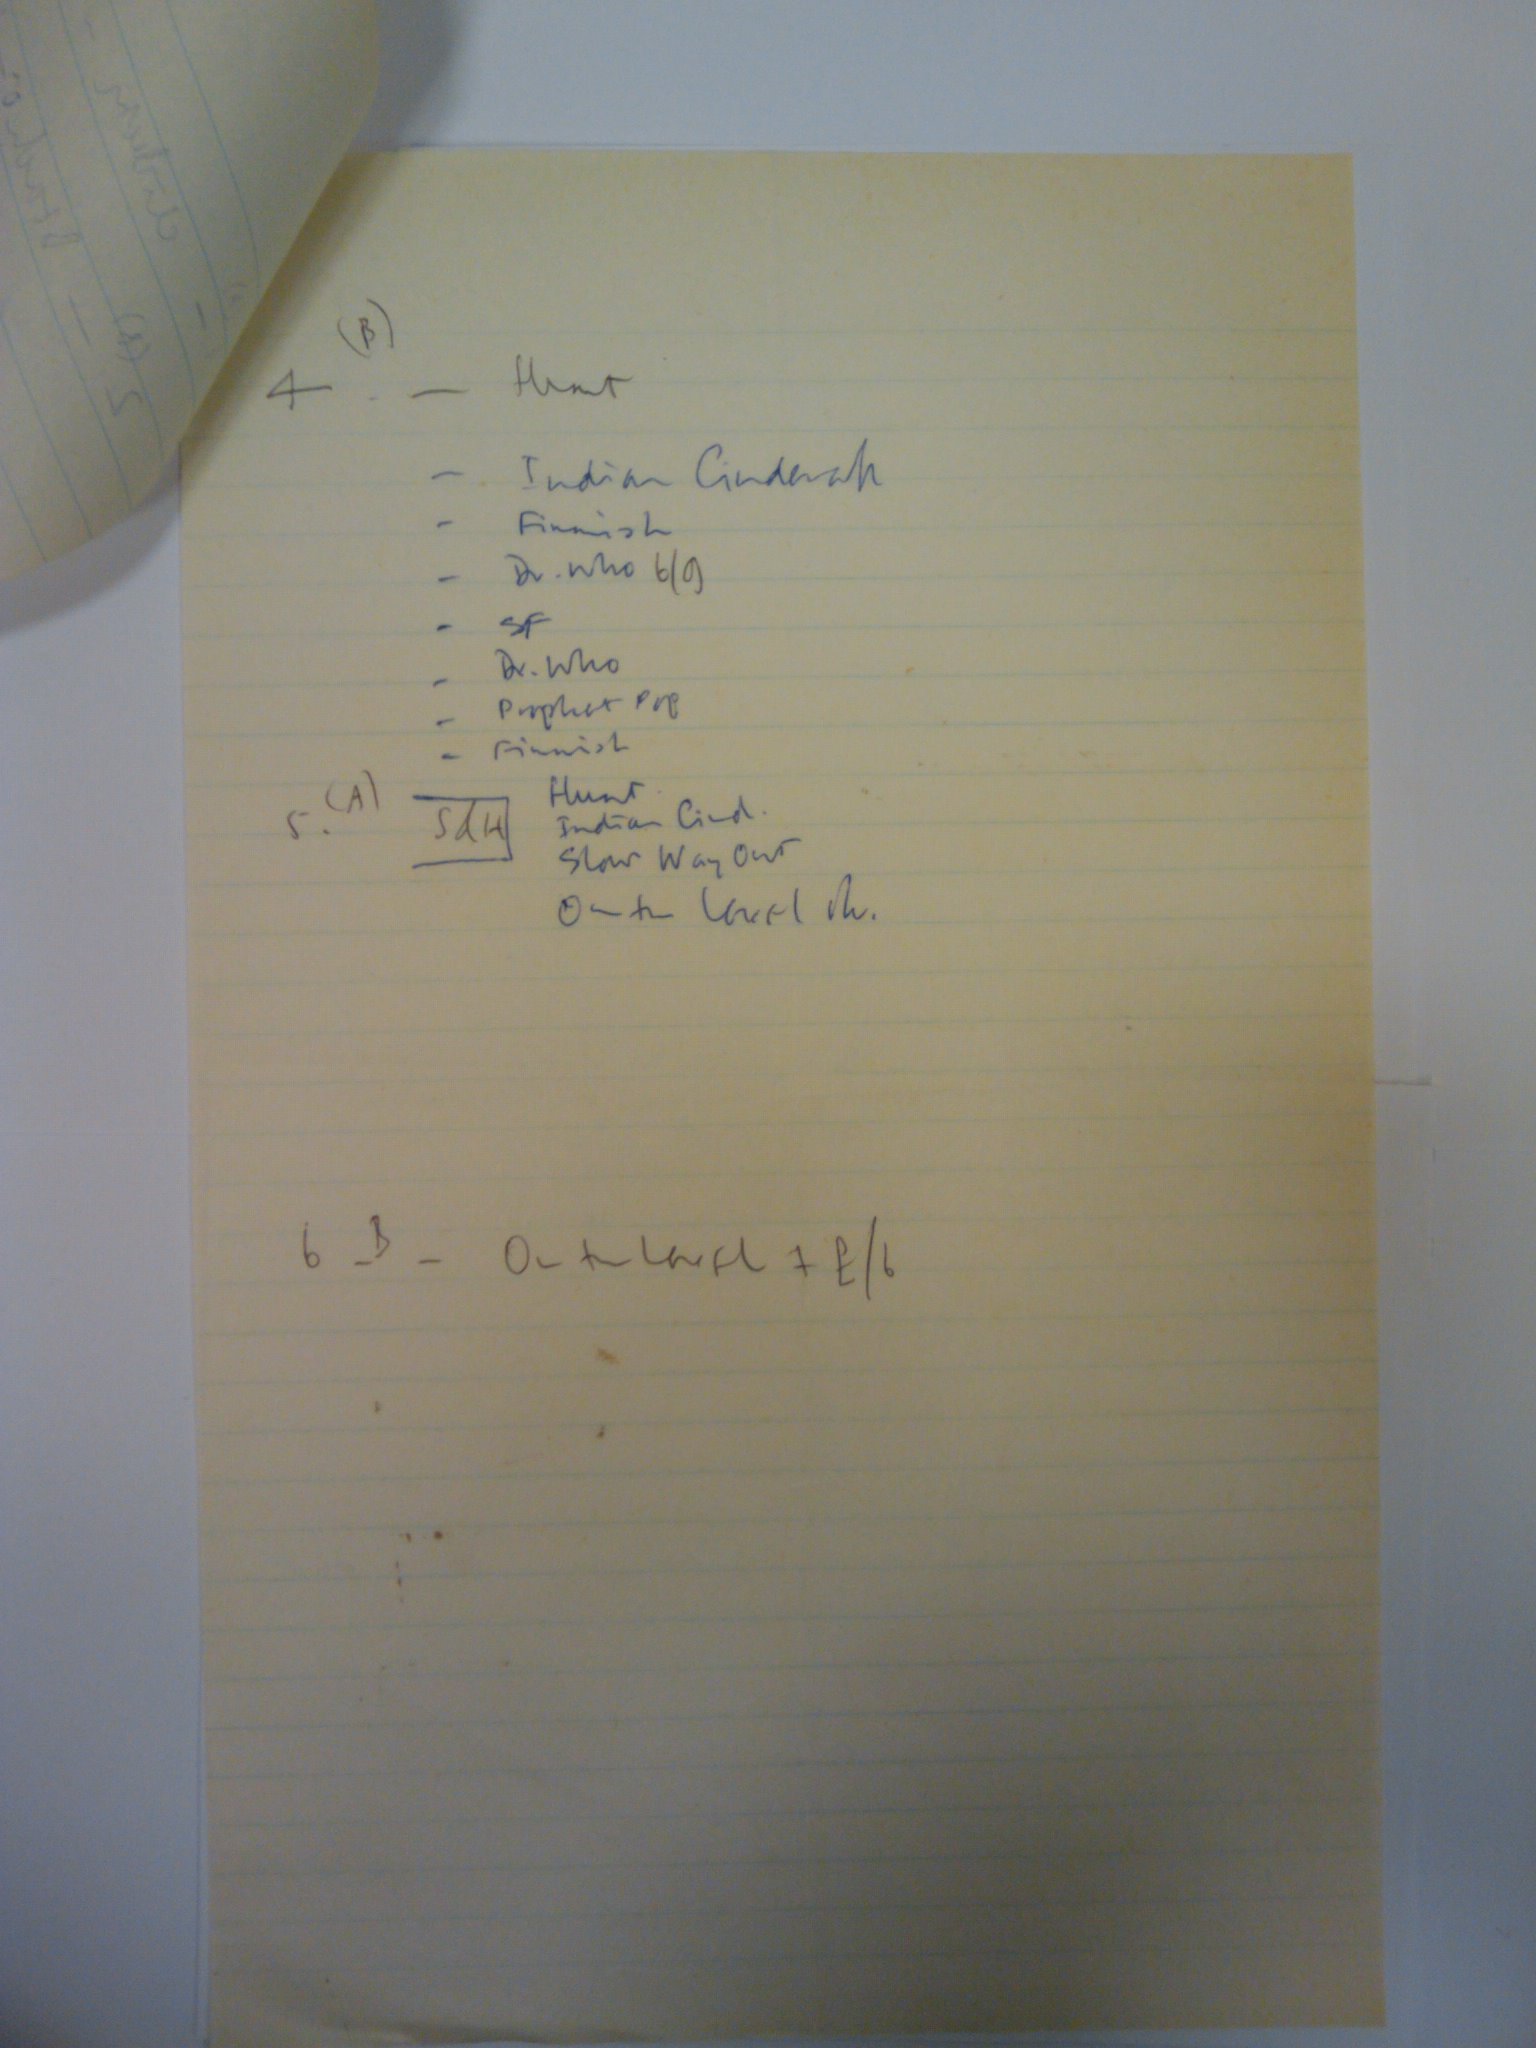 4 (B) - Hunt
- Indian Cinderah
- Finnish
- Dr. Who 6/9
- SF
- Dr. Who
- Prophet Pop
- Finnish
5. (A) SdH Hunt
Indian Cind.
Slow Way Out
On the Level
6 - B - On the Level + E/6